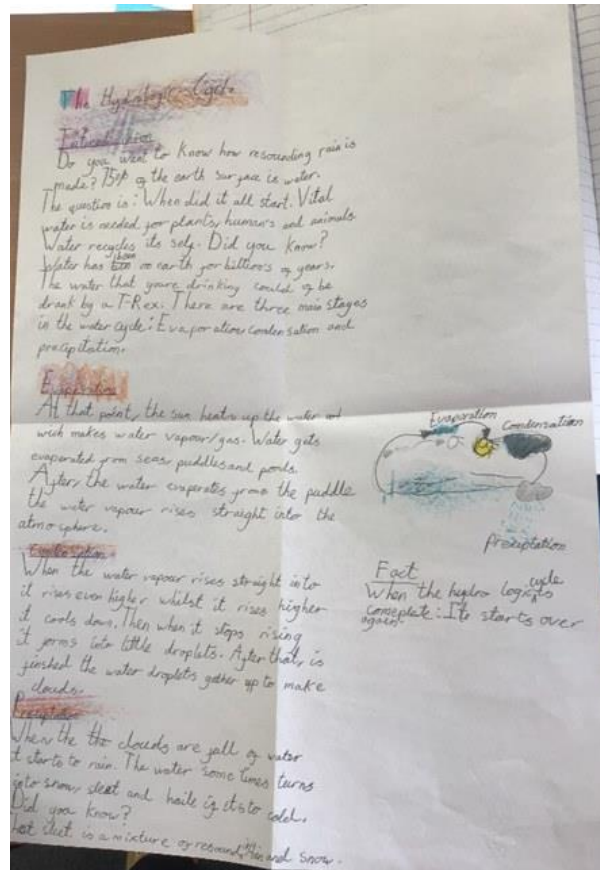 The Hydrologic Cycle
Do you want to know how resounding rain is
made? 75% of the earth surface is water.
The question is: When did it all start. Vital
water is needed for plants, humans and animals
Water recycles its self. Did you know?
Water has been on earth for billions of years.
The water that youre drinking could of be
drank by a T-Rex. There are three main stages
in the water cycle: Evaporation, condensation and
precipitation.
Evaporation
At that point, the sun heats up the water and
wich makes water vapour/gas. Water gets
evaporated from seas, puddles and ponds.
After, the water evaporates from the puddle
the water vapour rises straight into the
atmosphere.
Condensation
When the water vapour rises straight into
it rises even higher whilst it rises higher
it cools down. Then when it stops rising
it forms into little droplets. After that, is
finshed the water droplets gather up to make
clouds.
Precipitation
When the the clouds are full of water
it starts to rain. The water some times turns
into snow, sleet and haile if its to cold.
Did you know?
sleet is a mixture of and snow.
Evaporation
Condensation
Preciptation
Fact
When the hydro logic cycle
complete: Its starts over
again